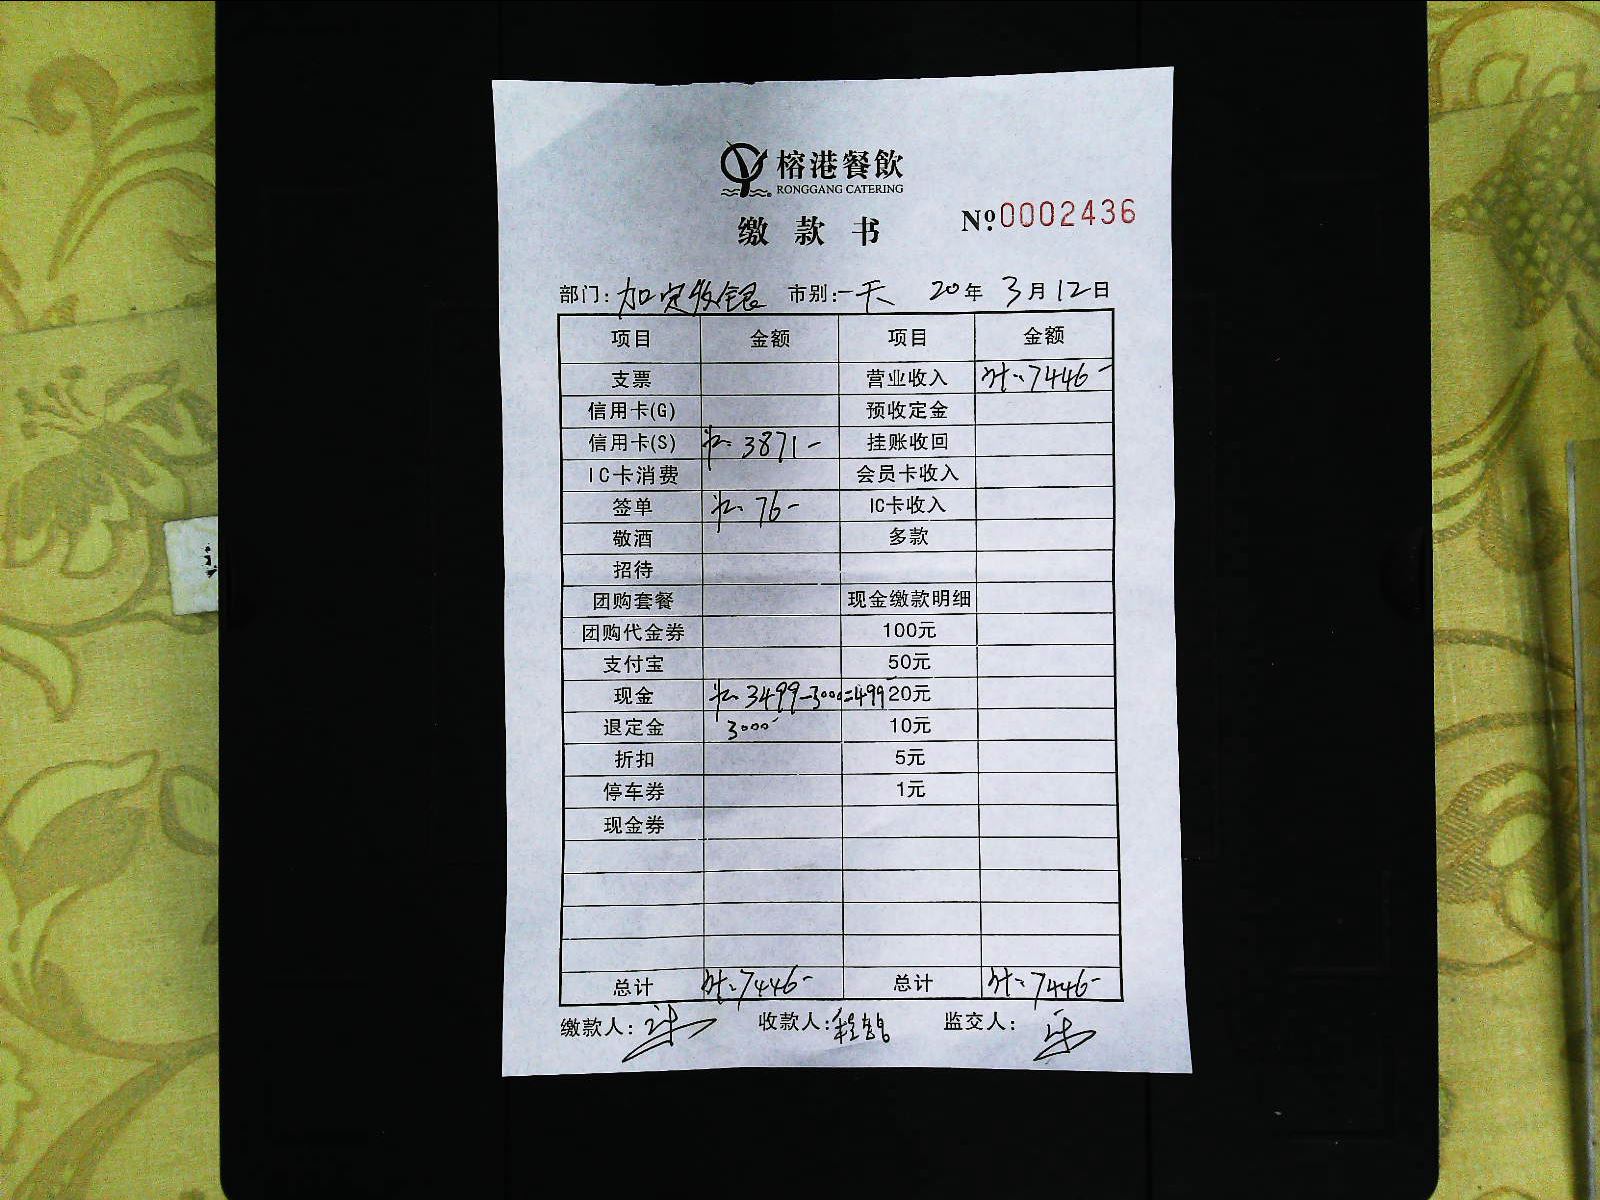 榕港餐飲
RONGGANG CATERING
缴款书 Nº.0002436
部门: 加定收银 市别: 一天 20年 3月12日
项目 金额 项目 金额
支票 营业收入 7446-
信用卡(G) 预收定金
信用卡(S) 3871- 挂账收回
IC卡消费 会员卡收入
签单 76- IC卡收入
敬酒 多款
招待
团购套餐 现金缴款明细
团购代金券 100元
支付宝 50元
现金 3499-3000=499 20元
退定金 3000- 10元
折扣 5元
停车券 1元
现金券
总计 7446- 总计 7446-
缴款人: 收款人: 监交人: